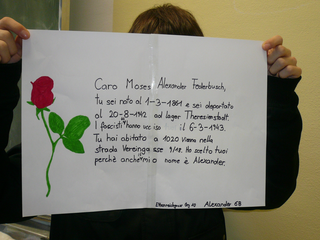 Caro Moses Alexander Federbusch,
tu sei nato al 1-3-1861 e sei deportato
al 20-8-1942 al lager Theresienstadt.
I fascisti hanno ucciso il 6-3-1943.
Tu hai abitato a 1020 Vienna nella
strada Vereinsga sse 9/18. Ho scelto tuoi
perchè anche mi o nome è Alexander.
Alexander 6B